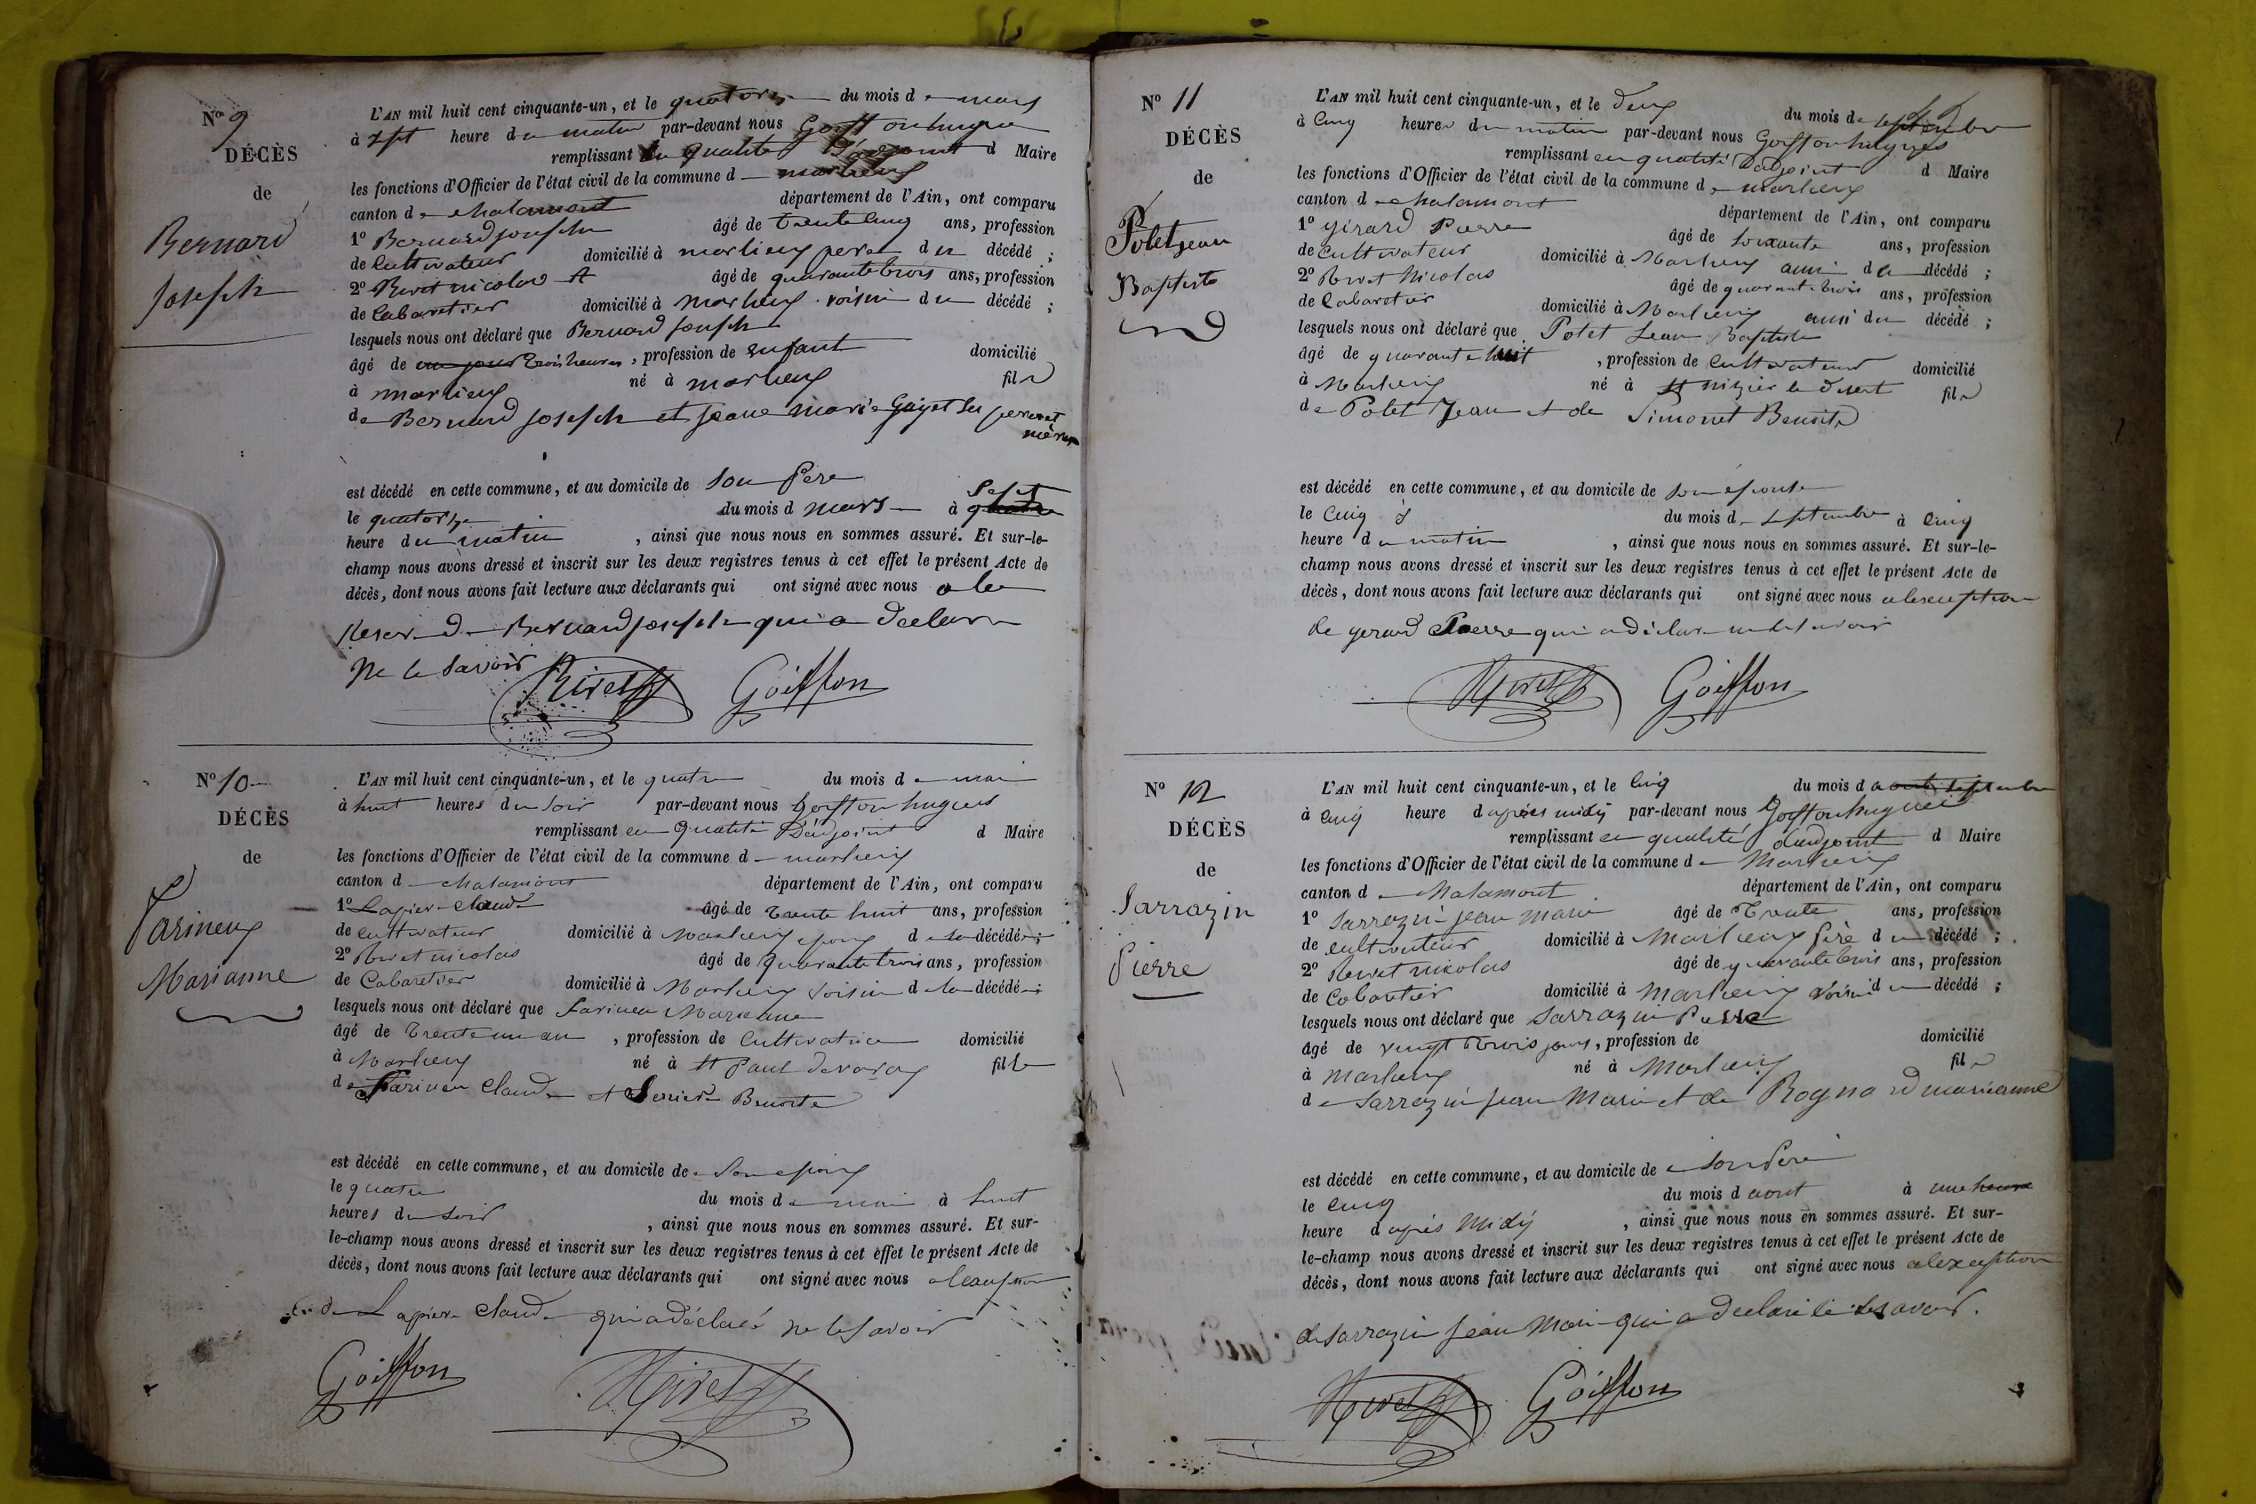 Nº 9
DÉCÈS
de
Bernard
Joseph
L'AN mil huit cent cinquante-un, et le quatorze du mois de mars
à sept heure du matin par-devant nous Goiffon hugues
remplissant en qualité d'adjoint d Maire
les fonctions d'Officier de l'état civil de la commune d marlieux
canton de chalamont département de l'Ain, ont comparu
1º Bernard joseph âgé de trente cinq ans, profession
de cultivateur domicilié à marlieux pere du décédé ;
2º Rivet nicolas âgé de quarante trois ans, profession
de Cabaretier domicilié à marlieux voisin du décédé ;
lesquels nous ont déclaré que Bernard Joseph
âgé de un jour trois heures, profession de enfant domicilié
à marlieux né à marlieux fils
de Bernard joseph et jeane marie Guyet ses pere et
mère
est décédé en cette commune, et au domicile de son pere
sept
le quatorze du mois d mars à quatre
heure du matin, ainsi que nous nous en sommes assuré. Et sur-le-
champ nous avons dressé et inscrit sur les deux registres tenus à cet effet le présent Acte de
décès, dont nous avons fait lecture aux déclarants qui ont signé avec nous a la
Reserve de Bernard joseph qui a declare
ne le savoir
Rivet Goiffon
Nº 10
DÉCÈS
de
Farineux
Marianne
L'AN mil huit cent cinquante-un, et le quatre du mois de mai
à huit heures du soir par-devant nous Goiffon hugues
remplissant en qualité d'adjoint d Maire
les fonctions d'Officier de l'état civil de la commune d marlieux
canton d chalamont département de l'Ain, ont comparu
1º Lapierre Claude âgé de trente huit ans, profession
de cultivateur domicilié à Marlieux epoux de la décédé ;
2º Rivet nicolas âgé de quarante trois ans, profession
de Cabaretier domicilié à Marlieux voisin de la décédé ;
lesquels nous ont déclaré que Farineu Marianne
âgé de trente un an, profession de Cultivatrice domicilié
à Marlieux né à st Paul de varax fille
de Farineu Claude et Benoite
est décédé en cette commune, et au domicile de son epoux
le quatre du mois de mai à huit
heures du soir, ainsi que nous nous en sommes assuré. Et sur-
le-champ nous avons dressé et inscrit sur les deux registres tenus à cet effet le présent Acte de
décès, dont nous avons fait lecture aux déclarants qui ont signé avec nous a lexception
de Lapierre Claude qui a déclaré ne le savoir
Goiffon Rivet
Nº 11
DÉCÈS
de
Polet jean
Baptiste
L'AN mil huit cent cinquante-un, et le deux du mois de septembre
à cinq heures du matin par-devant nous Goiffon hugues
remplissant en qualité d'adjoint d Maire
les fonctions d'Officier de l'état civil de la commune de marlieux
canton de chalamont département de l'Ain, ont comparu
1º gérard Pierre âgé de soixante ans, profession
de cultivateur domicilié à Marlieux ami du décédé ;
2º Rivet Nicolas âgé de quarante trois ans, profession
de Cabaretier domicilié à Marlieux ami du décédé ;
lesquels nous ont déclaré que Polet Jean Baptiste
âgé de quarante huit, profession de Cultivateur domicilié
à Marlieux né à st nizier le desert fils
de Polet Jean et de Simonet Benoite
est décédé en cette commune, et au domicile de son épouse
le cinq du mois de septembre à cinq
heure du matin, ainsi que nous nous en sommes assuré. Et sur-le-
champ nous avons dressé et inscrit sur les deux registres tenus à cet effet le présent Acte de
décès, dont nous avons fait lecture aux déclarants qui ont signé avec nous a lexception
de gerard Pierre qui a déclare ne le savoir
Rivet Goiffon
Nº 12
DÉCÈS
de
Sarrazin
Pierre
L'AN mil huit cent cinquante-un, et le cinq du mois d aout septembre
à cinq heure d'après midy par-devant nous Goiffon hugues
remplissant en qualité d'adjoint d Maire
les fonctions d'Officier de l'état civil de la commune de Marlieux
canton de chalamont département de l'Ain, ont comparu
1º Sarrazin jean marie âgé de trente ans, profession
de cultivateur domicilié à Marlieux père du décédé ;
2º Rivet nicolas âgé de quarante trois ans, profession
de Cabartier domicilié à Marlieux voisin du décédé ;
lesquels nous ont déclaré que Sarrazin Pierre
âgé de vingt trois jours, profession de domicilié
à Marlieux né à Marlieux fils
de Sarrazin jean Marie et de Rognard marianne
est décédé en cette commune, et au domicile de son Père
le cinq du mois d aout à une heure
heure d après Midy, ainsi que nous nous en sommes assuré. Et sur-
le-champ nous avons dressé et inscrit sur les deux registres tenus à cet effet le présent Acte de
décès, dont nous avons fait lecture aux déclarants qui ont signé avec nous a lexception
de Sarrazin jean Marie qui a declaré savoir.
Rivet Goiffon